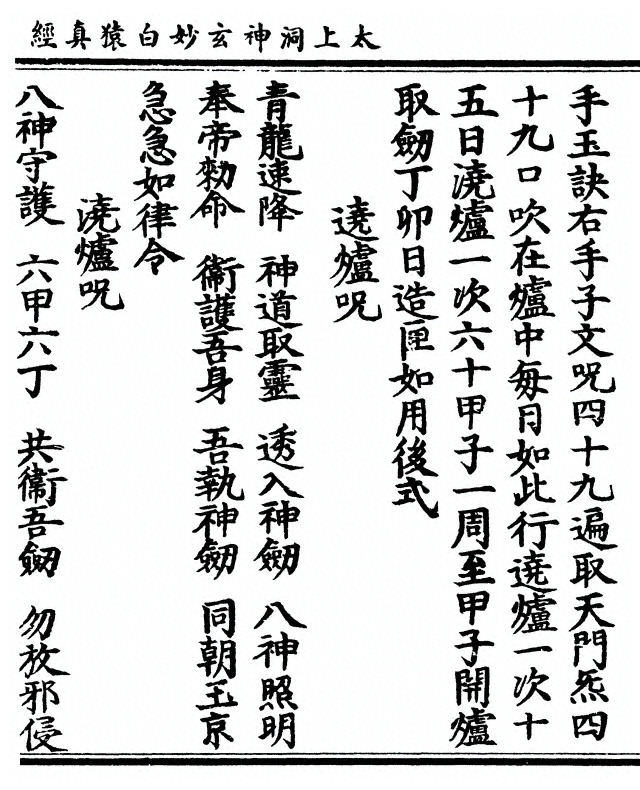 太上洞神玄妙白猿真經
手玉訣右手子文咒四十九遍取天門炁四
十九口吹在爐中每日如此行遶爐一次十
五日澆爐一次六十甲子一周至甲子開爐
取劒丁卯日造匣如用後式
遶爐咒
青龍速降 神道取靈 透入神劒 八神照明
奉帝勑命 衞護吾身 吾執神劒 同朝玉京
急急如律令
澆爐咒
八神守護 六甲六丁 共衞吾劒 勿放邪侵